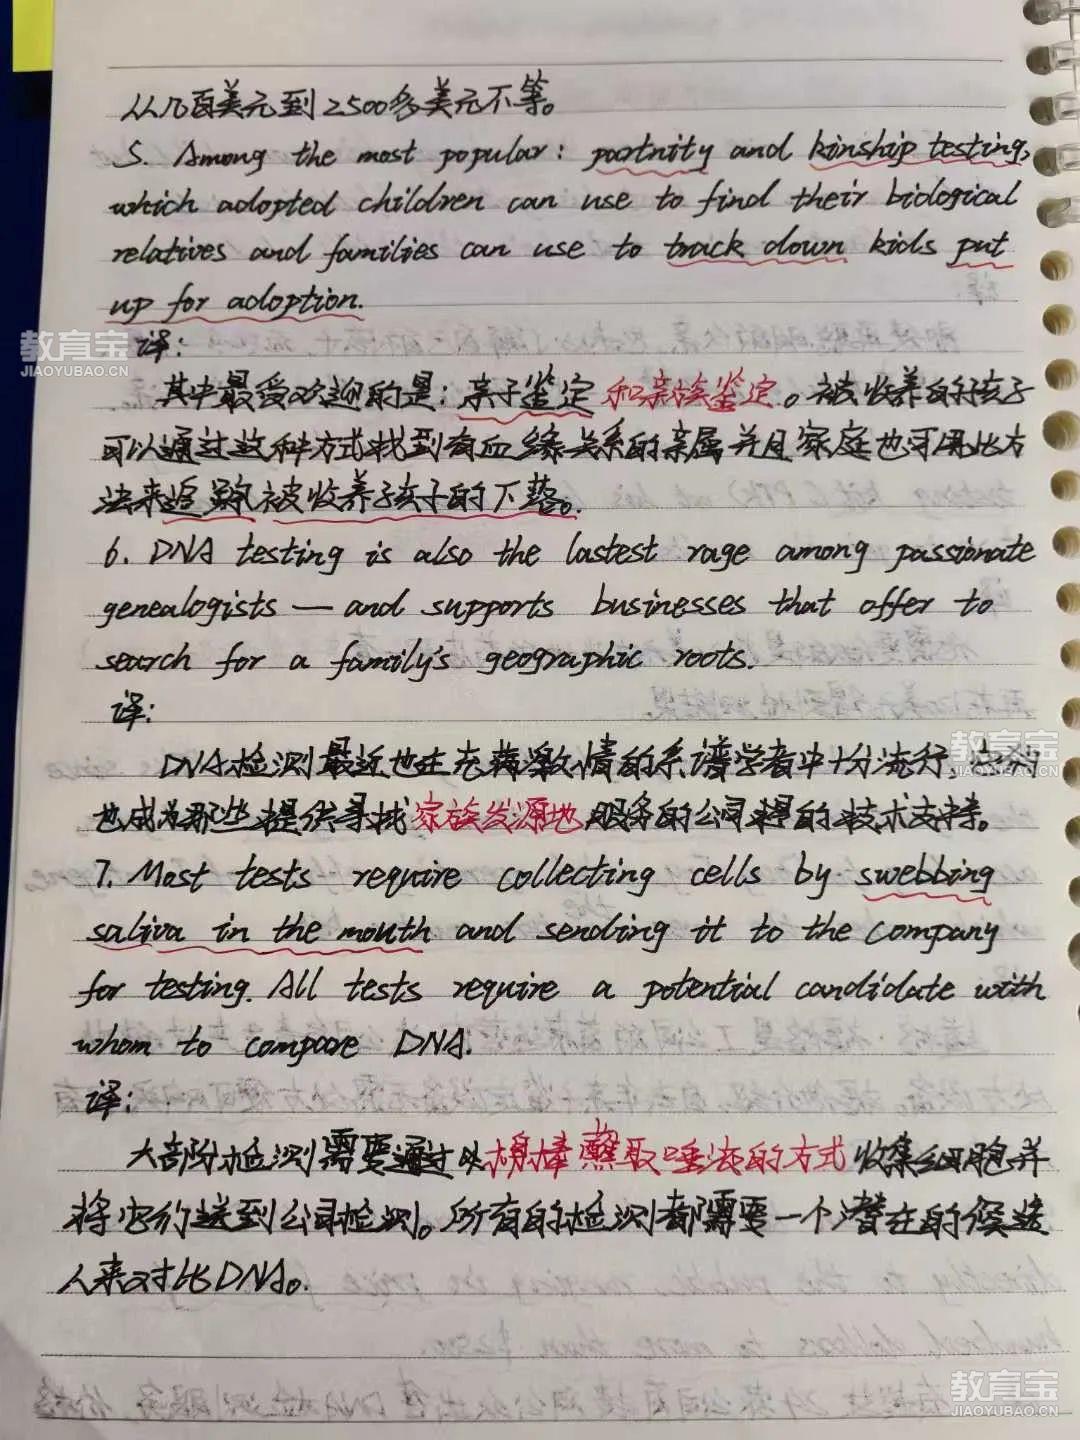 从几百美元到2500多美元不等。
5. Among the most popular: partnity and kinship testing,
which adopted children can use to find their biological
relatives and families can use to track down kids put
up for adoption.
译:
其中最受欢迎的是：亲子鉴定和亲族鉴定。被收养的孩子
可以通过这种方式找到有血缘关系的亲属并且家庭也可用此方
法来追踪被收养孩子的下落。
6. DNA testing is also the lastest rage among passionate
genealogists — and supports businesses that offer to
search for a family's geographic roots.
译:
DNA检测最近也在充满激情的系谱学者中十分流行，它们
也成为那些提供寻找家族发源地服务的公司的技术支持。
7. Most tests require collecting cells by swebbing
saliva in the mouth and sending it to the company
for testing. All tests require a potential candidate with
whom to compare DNA.
译:
大部份检测需要通过以棉棒蘸取唾液的方式收集细胞并
将它们送到公司检测。所有的检测都需要一个潜在的候选
人来对比DNA。
教育宝
JIAOYUBAO.CN
教育宝
JIAOYUBAO.CN
教育宝
JIAOYUBAO.CN